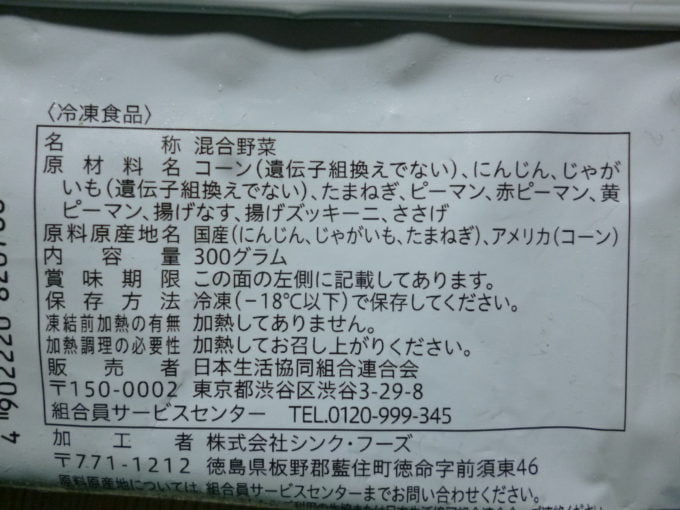 〈冷凍食品〉
名称 混合野菜
原材料名 コーン(遺伝子組換えでない)、にんじん、じゃが
いも(遺伝子組換えでない)、たまねぎ、ピーマン、赤ピーマン、黄
ピーマン、揚げなす、揚げズッキーニ、ささげ
原料原産地名 国産(にんじん、じゃがいも、たまねぎ)、アメリカ(コーン)
内容量 300グラム
賞味期限 この面の左側に記載してあります。
保存方法 冷凍(−18℃以下)で保存してください。
凍結前加熱の有無 加熱してありません。
加熱調理の必要性 加熱してお召し上がりください。
販売者 日本生活協同組合連合会
〒150-0002 東京都渋谷区渋谷3-29-8
組合員サービスセンター TEL.0120-999-345
加工者 株式会社シンク・フーズ
〒771-1212 徳島県板野郡藍住町徳命字前須東46
原料原産地については、組合員サービスセンターまでお問い合わせください。
4 902220